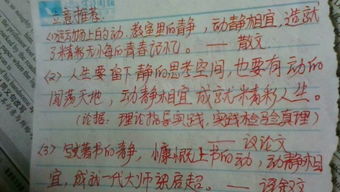 立意推荐:
(1) 运动场上的动,教室里的静,动静相宜,造就
了精彩无悔的青春记忆。 —— 散文
(2) 人生要留下静的思考空间,也要有动的
闯荡天地,动静相宜 成就精彩人生。
(论据:理论指导实践,实践检验真理)
—— 议论文
(3) 书的静,慷慨上书的动,动静相
宜,成就一代大师梁启超。 ——